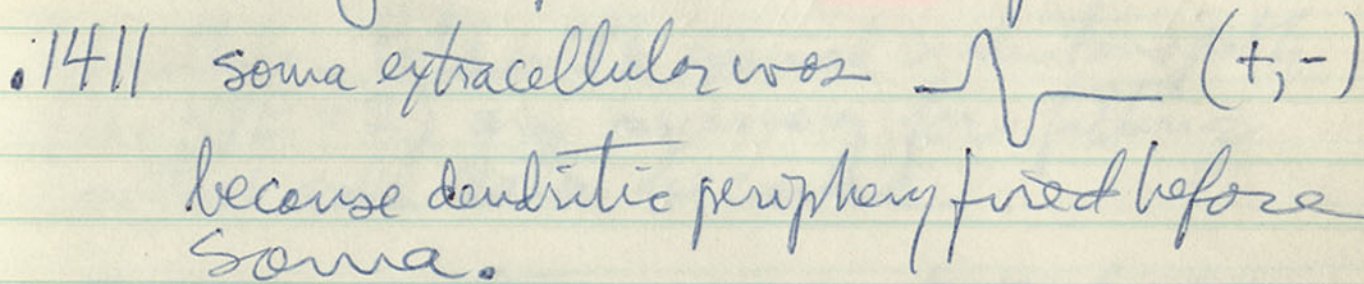 .1411 soma extracellular was (+,-)
because dendritic periphery fired before
soma.